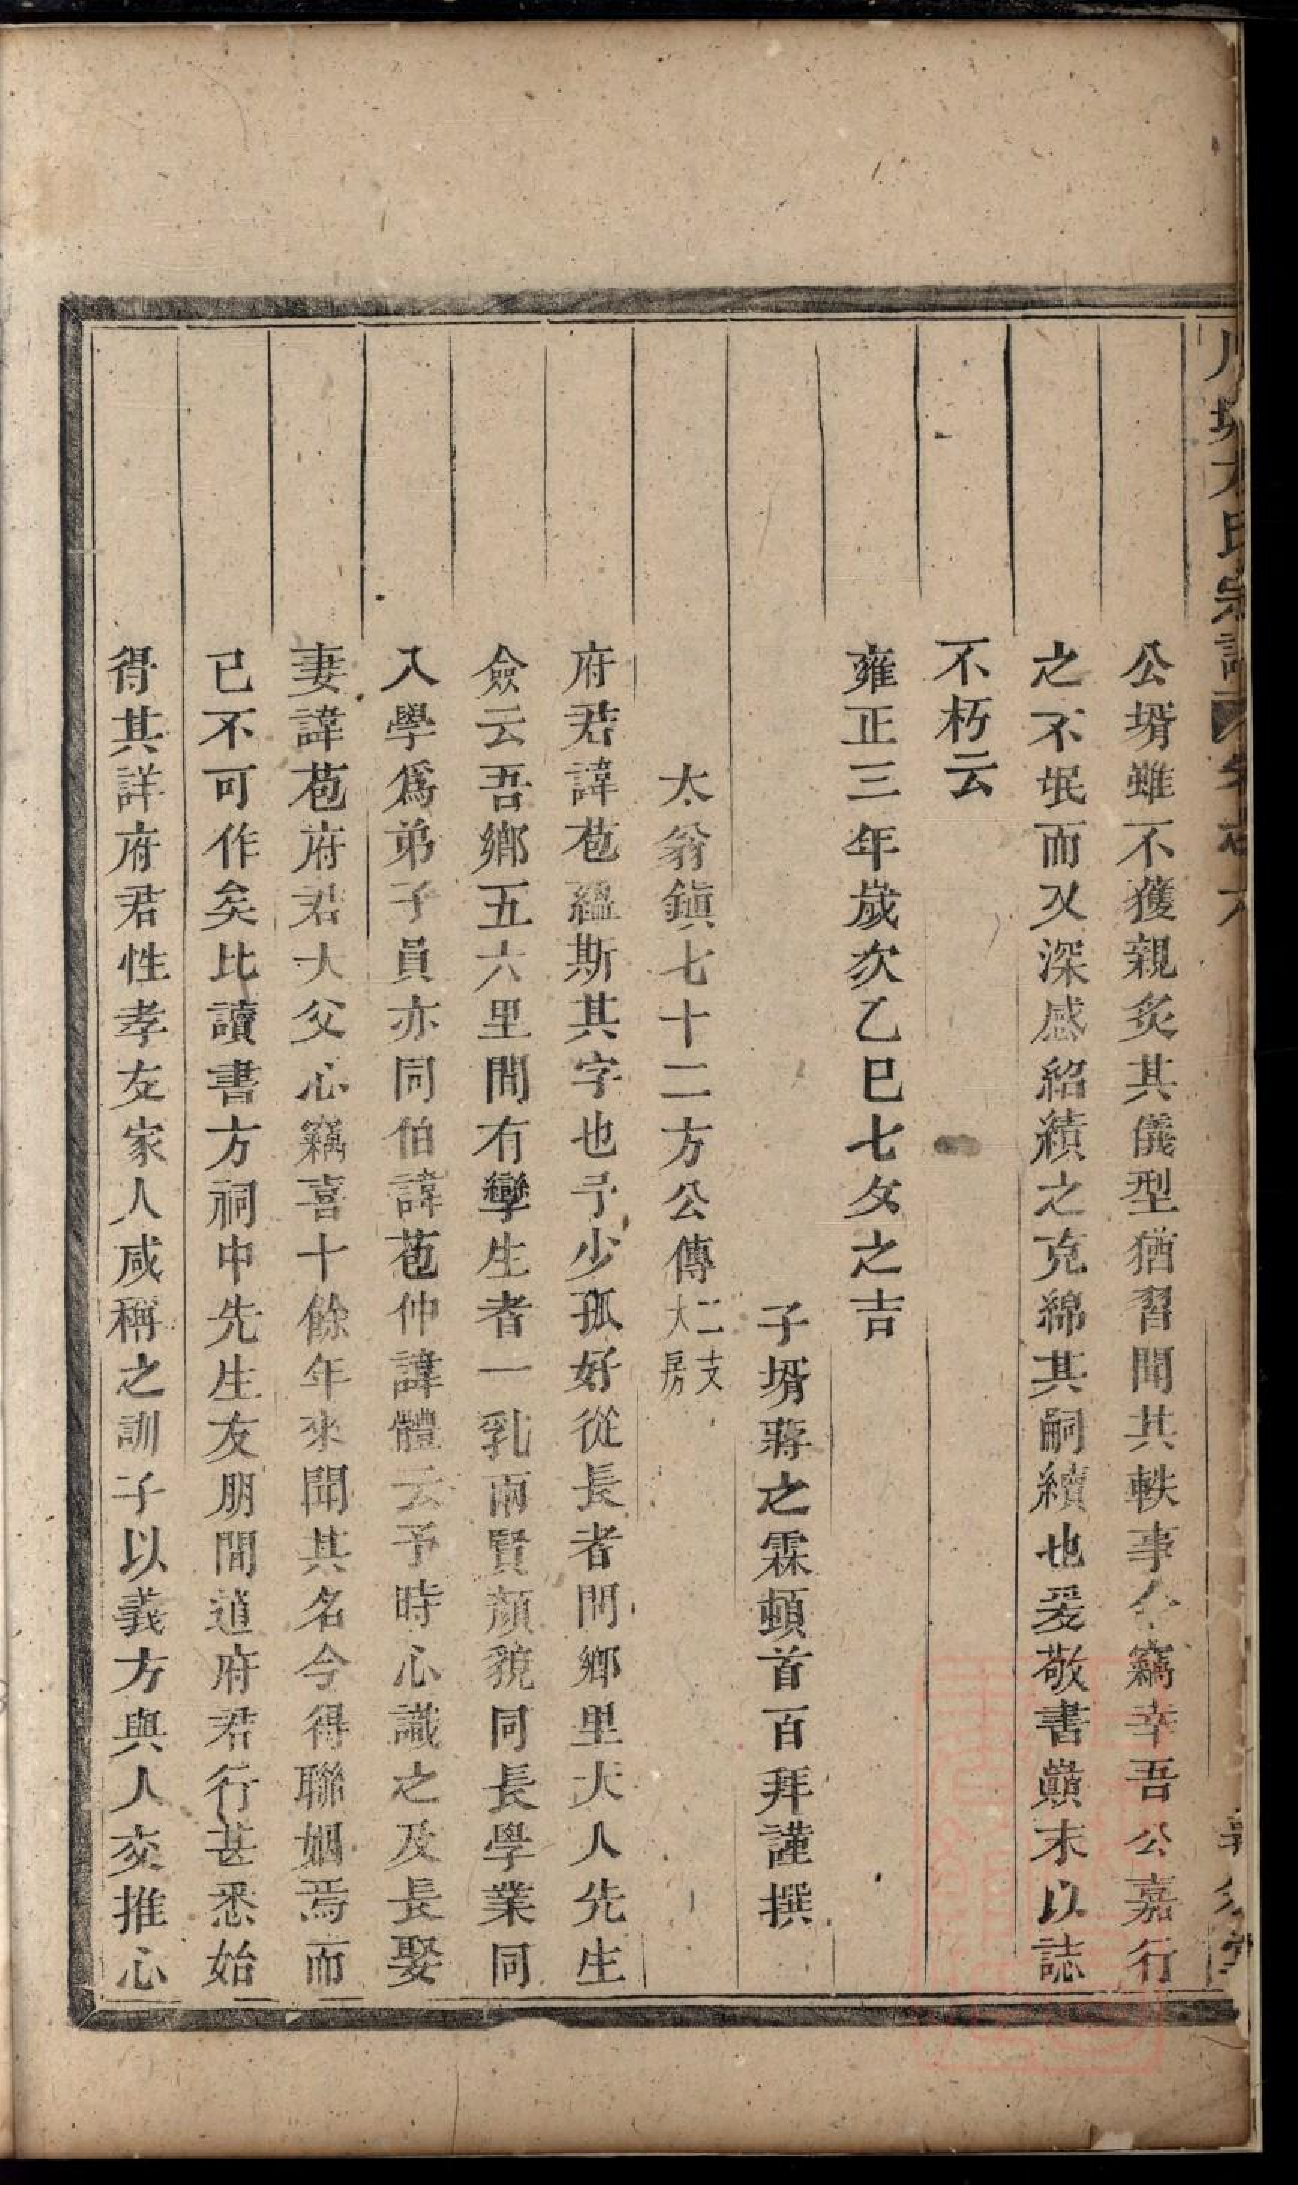 方氏宗譜
公壻雖不獲親炙其儀型猶習聞其軼事今竊幸吾公嘉行
之不氓而又深感紹績之克綿其嗣續也爰敬書巔末以誌
不朽云
雍正三年歲次乙巳七夕之吉
子壻蔣之霖頓首百拜謹撰
太翁鎮七十二方公傳二支大房
府君諱苞蘊斯其字也予少孤好從長者問鄉里大人先生
僉云吾鄉五六里間有孿生者一乳兩賢顏貌同長學業同
入學爲弟子員亦同伯諱苞仲諱體云予時心識之及長娶
妻諱苞府君大父心竊喜十餘年來聞其名今得聯姻焉而
已不可作矣比讀書方祠中先生友朋間道府君行甚悉始
得其詳府君性孝友家人咸稱之訓子以義方與人交推心